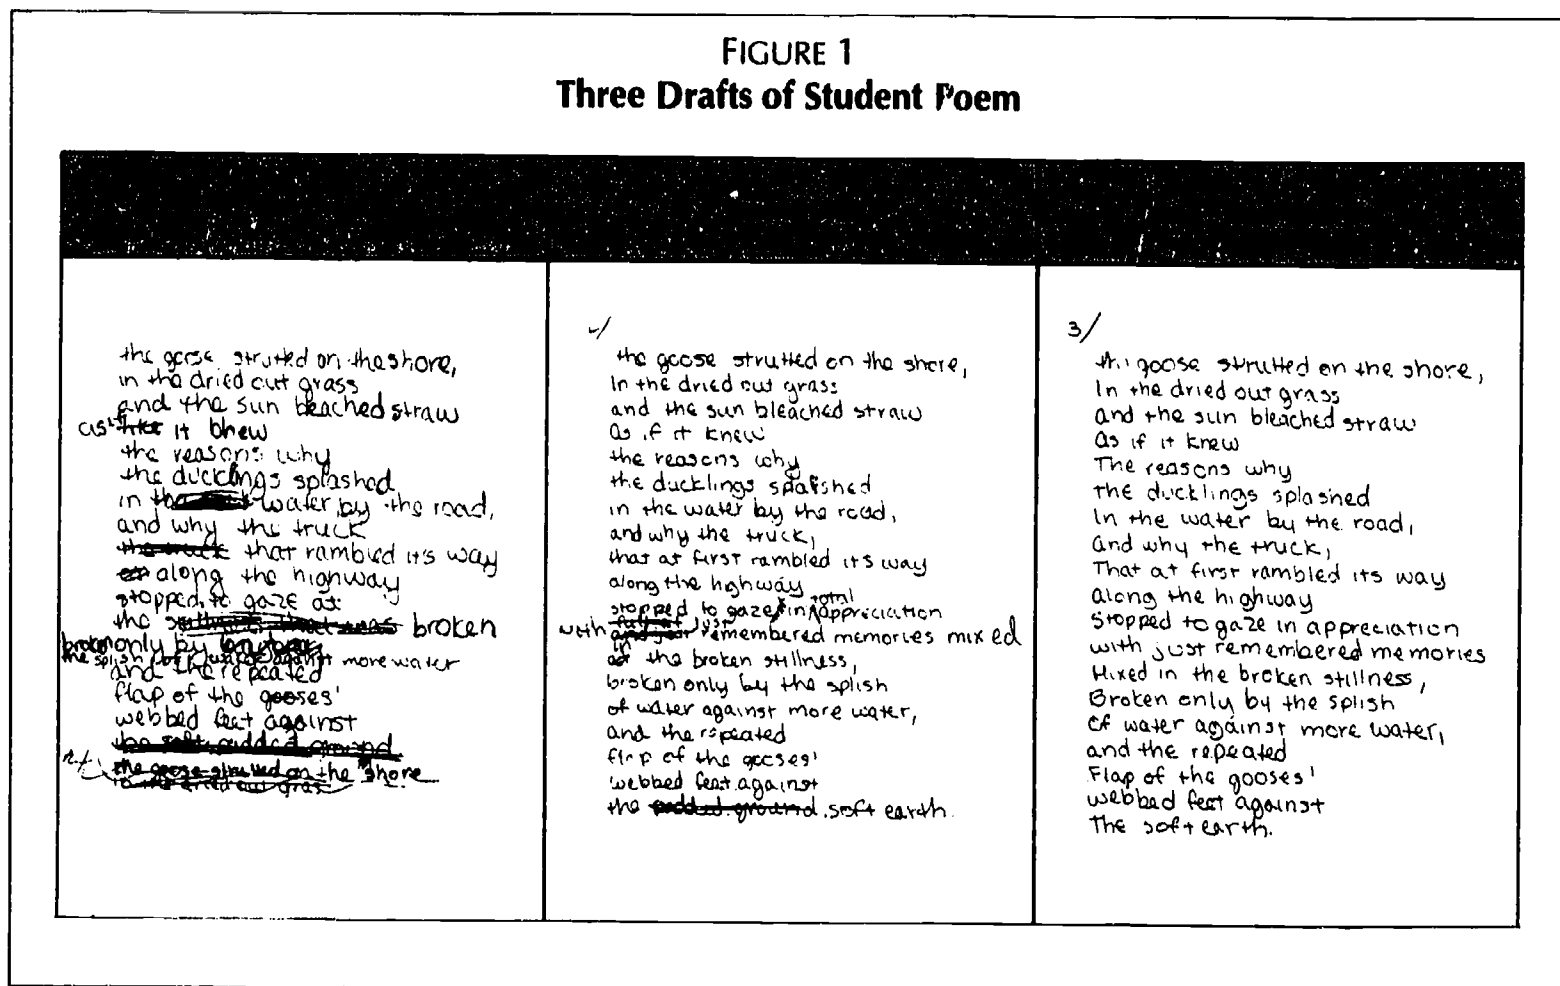 FIGURE 1
Three Drafts of Student Poem
the goose strutted on the shore,
in the dried out grass
and the sun bleached straw
as if like it knew
the reasons why
the ducklings splashed
in the water by the road,
and why the truck
the truck that rambled it's way
along the highway
stopped to gaze at
the stillness that was broken
broken only by
the splish of water against more water
and the repeated
flap of the gooses'
webbed feet against
the soft padded ground
the goose strutted on the shore
in the dried out gras
2/
the goose strutted on the shore,
In the dried out grass
and the sun bleached straw
as if it knew
the reasons why
the ducklings spalshed
in the water by the road,
and why the truck,
that at first rambled its way
along the highway
stopped to gaze in appreciation
with just remembered memories mixed
in the broken stillness,
broken only by the splish
of water against more water,
and the repeated
flap of the gooses'
webbed feet against
the padded ground soft earth.
3/
the goose strutted on the shore,
In the dried out grass
and the sun bleached straw
As if it knew
The reasons why
the ducklings splashed
In the water by the road,
and why the truck,
That at first rambled its way
along the highway
Stopped to gaze in appreciation
with just remembered memories
Mixed in the broken stillness,
Broken only by the splish
Of water against more water,
and the repeated
Flap of the gooses'
webbed feet against
The soft earth.